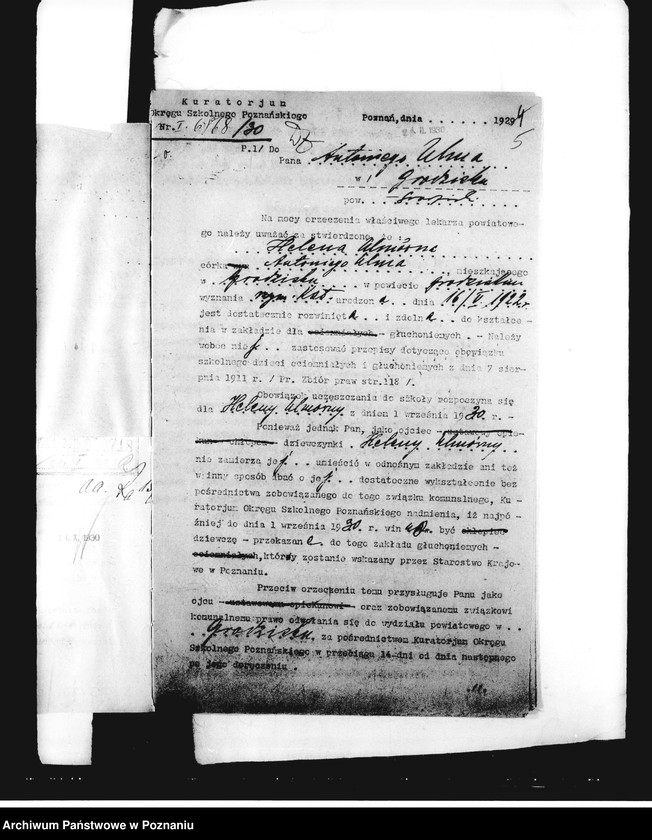 Kuratorjum
Okręgu Szkolnego Poznańskiego
Nr. I. 6168/30
Poznań, dnia . . . . . . . 1929
4
5
P.1/ Do
Pana Antoniego Ulma
w Grodzisku
pow.
Na mocy orzeczenia właściwego lekarza powiatowe-
go należy uważać za stwierdzone, że :
Helena Ulmówna
córka Antoniego Ulma mieszkającego
w Grodzisku w powiecie grodziskim
wyznania rzym. kat. urodzona dnia 16/V 1922 r.
jest dostatecznie rozwinięta . . i zdolna . . do kształce-
nia w zakładzie dla ociemniałych - głuchoniemych . - Należy
wobec niej . . zastosować przepisy dotyczące obowiązku
szkolnego dzieci ociemniałych i głuchoniemych z dnia 7 sier-
pnia 1911 r. / Pr. Zbiór praw str.118 /.
Obowiązek uczęszczania do szkoły rozpoczyna się
dla Heleny Ulmówny z dniem 1 września 1930. r. -
Ponieważ jednak Pan, jako ojciec - ustawowy opie-
kun chłopca - dziewczynki . Heleny Ulmówny . .
nie zamierza jej . . umieścić w odnośnym zakładzie ani też
w inny sposób dbać o jej . . dostateczne wykształcenie bez
pośrednictwa zobowiązanego do tego związku komunalnego, Ku-
ratorjum Okręgu Szkolnego Poznańskiego nadmienia, iż najpó-
źniej do dnia 1 września 1930. r. winno być chłopiec
dziewczę - przekazane do tego zakładu głuchoniemych -
ociemniałych, który zostanie wskazany przez Starostwo Krajo-
we w Poznaniu.
Przeciw orzeczeniu temu przysługuje Panu jako
ojcu - ustawowemu opiekunowi - oraz zobowiązanemu związkowi
komunalnemu prawo odwołania się do wydziału powiatowego w . .
. Grodzisku. za pośrednictwem Kuratorjum Okręgu
Szkolnego Poznańskiego w przeciągu 14 dni od dnia następnego
po jego doręczeniu .
Archiwum Państwowe w Poznaniu